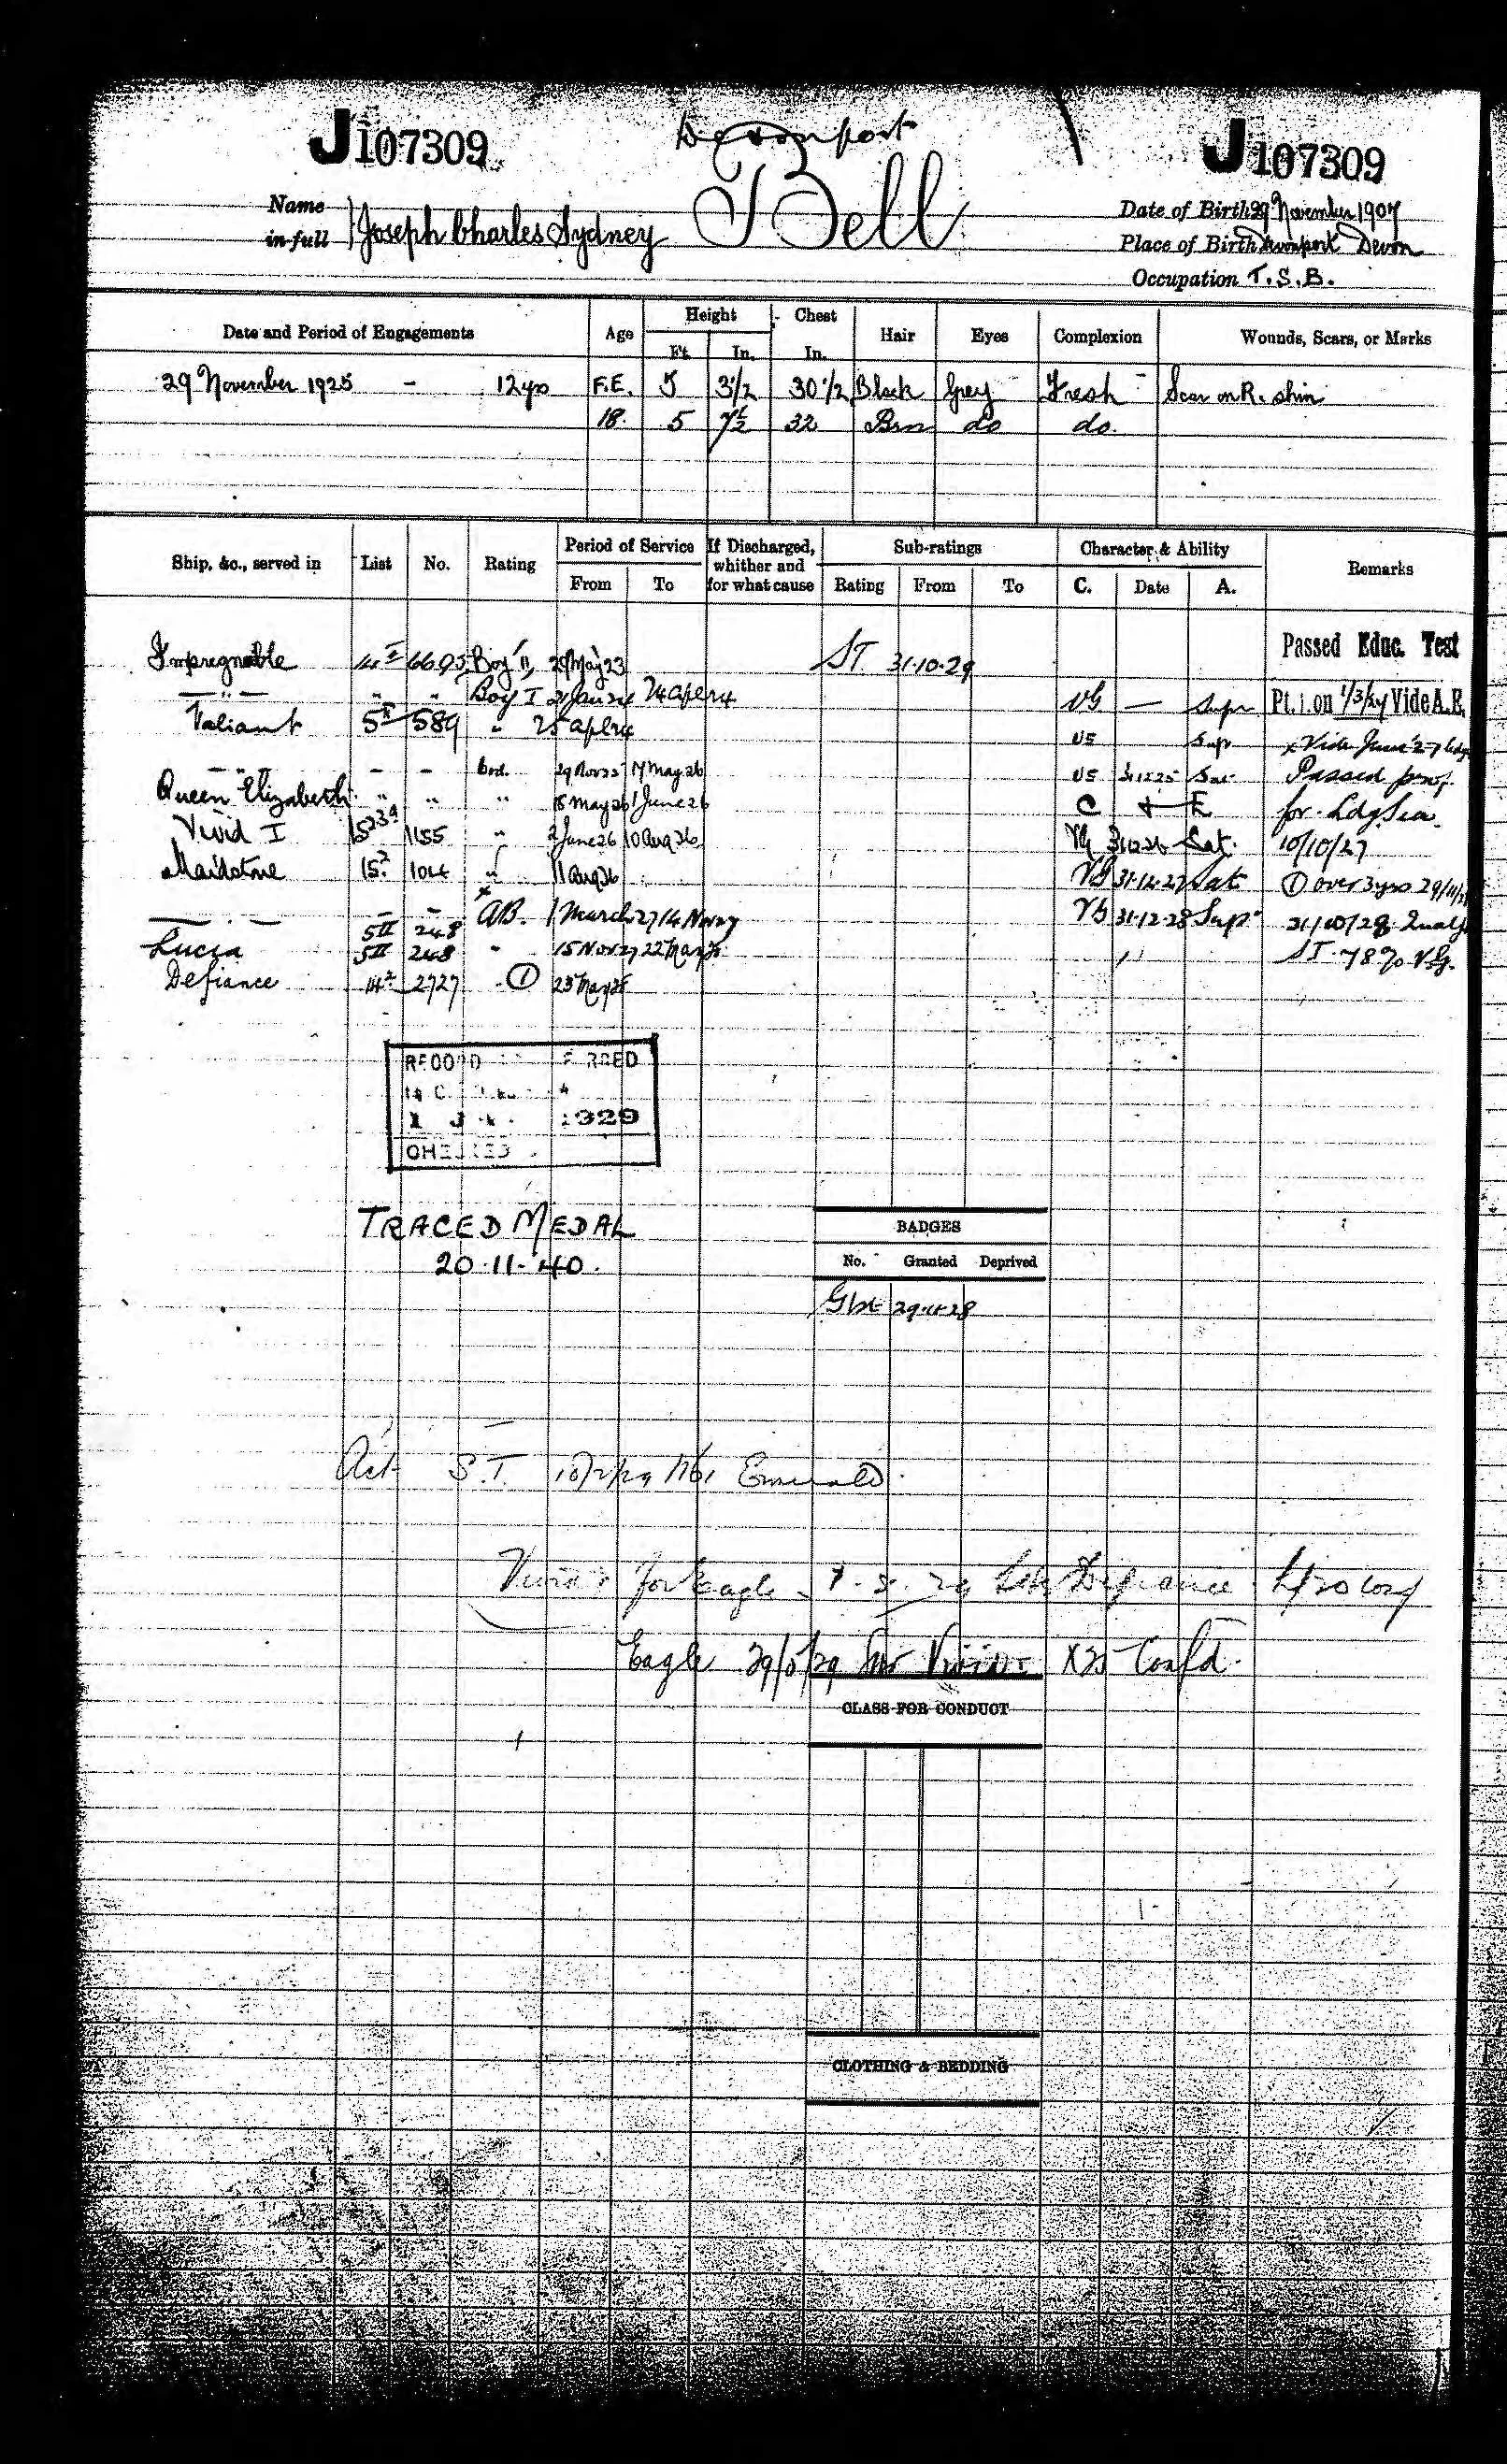 Devonport
J107309 J107309
Name in full Joseph Charles Sydney Bell
Date of Birth 29 November 1907
Place of Birth Devonport Devon
Occupation T.S.B.
Date and Period of Engagements Age Height Ft. In. Chest In. Hair Eyes Complexion Wounds, Scars, or Marks
29 November 1925 - 12 yrs F.E. 5 3½ 30½ Black Grey Fresh Scar on R. shin
18. 5 7½ 32 Brn do do.
Ship, &c., served in List No. Rating Period of Service From To If Discharged, whither and for what cause Sub-ratings Rating From To Character & Ability C. Date A. Remarks
Impregnable 6695 Boy II, 23 ST 31.10.29 Passed Educ. Test
—"— " " Boy I 21 Jan 24 24 Apl 24 VG — Supr Pt. 1. on 1/3/24 Vide A.E.
Valiant 5II 589 " 25 Apl 24 VG Supr x Vide June '27
—"— - - Ord. 29 Nov 25 17 May 26 VG 31.12.25 Sat Passed prof.
Queen Elizabeth " " " 18 May 26 1 June 26 C & E for Ldg Sea.
Vivid I 1155 " 2 June 26 10 Aug 26 VG 31.12.26 Sat. 10/10/27
Maidstone 15.2 1014 " 11 Aug 26 VG 31.12.27 Sat ① over 3 yrs
— " — 5II 248 x AB. 1 March 27 14 Nov 27 VG 31-12-28 Sup
Lucia 5II 248 " 15 Nov 27 ST 78% VG.
Defiance 2727 - ①
RECORD
1929
CHECKED
TRACED MEDAL
20.11.40.
BADGES
No. Granted Deprived
G 1st 29.11.28
Act S.T. Emerald.
Vivid I for Eagle Defiance
Eagle Vivid I Confd.
CLASS FOR CONDUCT
CLOTHING & BEDDING